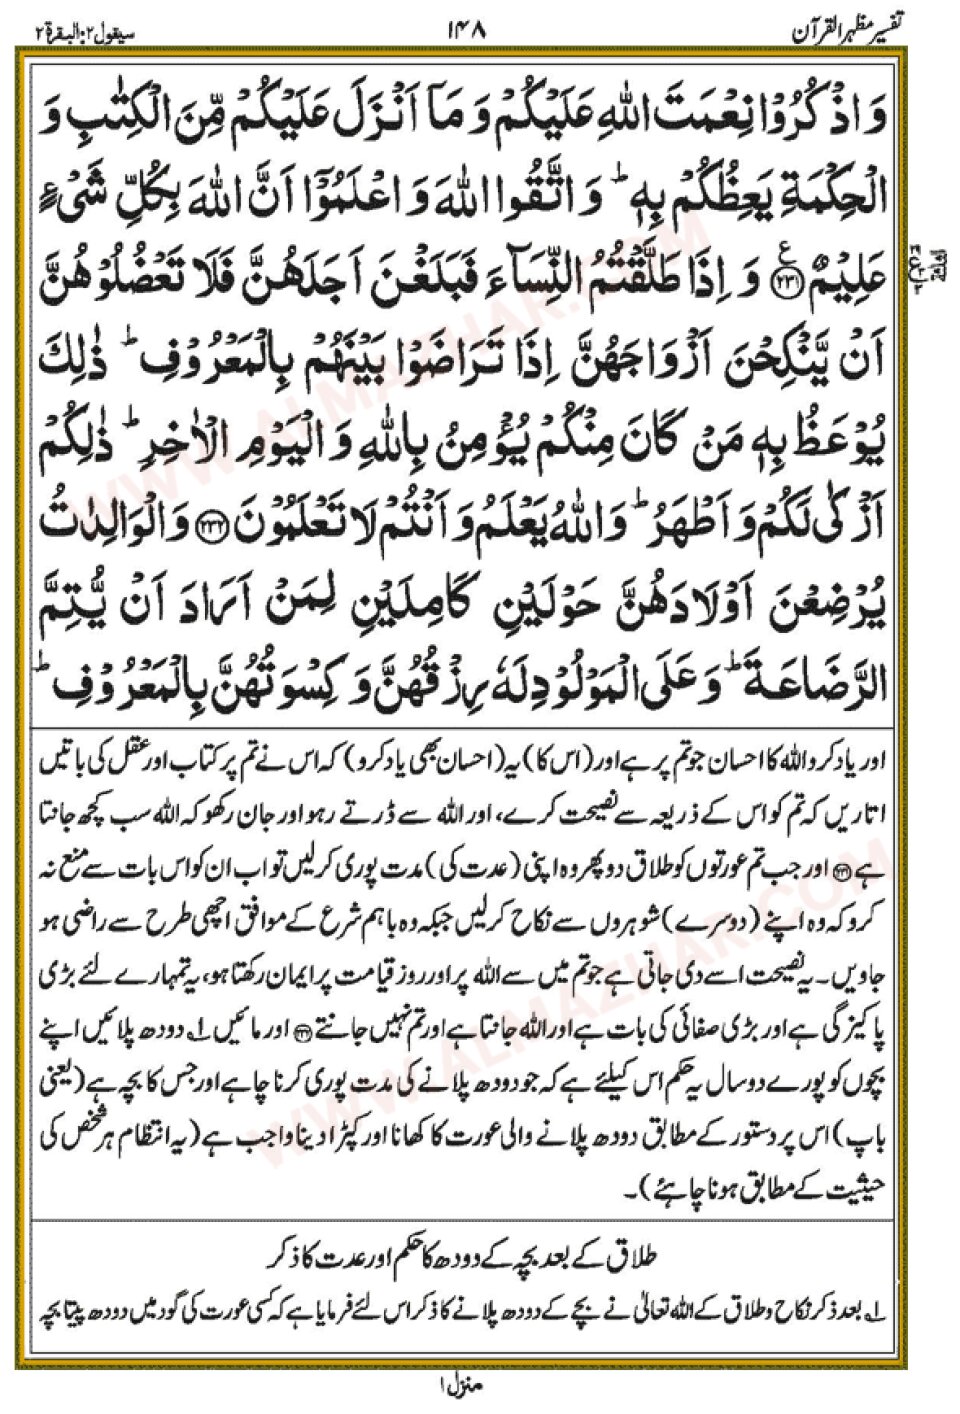 تفسیر مظہر القرآن ۱۴۸ سیقول ۲: البقرۃ ۲
وَاذْكُرُوْا نِعْمَتَ اللّٰهِ عَلَيْكُمْ وَمَآ اَنْزَلَ عَلَيْكُمْ مِّنَ الْكِتٰبِ وَ
الْحِكْمَةِ يَعِظُكُمْ بِهٖ ؕ وَاتَّقُوا اللّٰهَ وَاعْلَمُوْٓا اَنَّ اللّٰهَ بِكُلِّ شَیْءٍ
عَلِيْمٌ ﴿۲۳۱﴾ وَاِذَا طَلَّقْتُمُ النِّسَآءَ فَبَلَغْنَ اَجَلَهُنَّ فَلَا تَعْضُلُوْهُنَّ
اَنْ يَّنْكِحْنَ اَزْوَاجَهُنَّ اِذَا تَرَاضَوْا بَيْنَهُمْ بِالْمَعْرُوْفِ ؕ ذٰلِكَ
يُوْعَظُ بِهٖ مَنْ كَانَ مِنْكُمْ يُؤْمِنُ بِاللّٰهِ وَالْيَوْمِ الْاٰخِرِ ؕ ذٰلِكُمْ
اَزْكٰی لَكُمْ وَاَطْهَرُ ؕ وَاللّٰهُ يَعْلَمُ وَاَنْتُمْ لَا تَعْلَمُوْنَ ﴿۲۳۲﴾ وَالْوَالِدٰتُ
يُرْضِعْنَ اَوْلَادَهُنَّ حَوْلَيْنِ كَامِلَيْنِ لِمَنْ اَرَادَ اَنْ يُّتِمَّ
الرَّضَاعَةَ ؕ وَعَلَی الْمَوْلُوْدِ لَهٗ رِزْقُهُنَّ وَكِسْوَتُهُنَّ بِالْمَعْرُوْفِ ؕ
اور یاد کرو اللہ کا احسان جو تم پر ہے اور (اس کا) یہ (احسان بھی یاد کرو) کہ اس نے تم پر کتاب اور عقل کی باتیں
اتاریں کہ تم کو اس کے ذریعہ سے نصیحت کرے، اور اللہ سے ڈرتے رہو اور جان رکھو کہ اللہ سب کچھ جانتا
ہے ﴿۲۳۱﴾ اور جب تم عورتوں کو طلاق دو پھر وہ اپنی (عدت کی) مدت پوری کرلیں تو اب ان کو اس بات سے منع نہ
کرو کہ وہ اپنے (دوسرے) شوہروں سے نکاح کرلیں جبکہ وہ باہم شرع کے موافق اچھی طرح سے راضی ہو
جاویں۔ یہ نصیحت اسے دی جاتی ہے جو تم میں سے اللہ پر اور روز قیامت پر ایمان رکھتا ہو، یہ تمہارے لئے بڑی
پاکیزگی ہے اور بڑی صفائی کی بات ہے اور اللہ جانتا ہے اور تم نہیں جانتے ﴿۲۳۲﴾ اور مائیں ۱؎ دودھ پلائیں اپنے
بچوں کو پورے دو سال یہ حکم اس کیلئے ہے کہ جو دودھ پلانے کی مدت پوری کرنا چاہے اور جس کا بچہ ہے (یعنی
باپ) اس پر دستور کے مطابق دودھ پلانے والی عورت کا کھانا اور کپڑا دینا واجب ہے (یہ انتظام ہر شخص کی
حیثیت کے مطابق ہونا چاہئے)۔
طلاق کے بعد بچہ کے دودھ کا حکم اور عدت کا ذکر
۱؎ بعد ذکر نکاح و طلاق کے اللہ تعالیٰ نے بچے کے دودھ پلانے کا ذکر اس لئے فرمایا ہے کہ کسی عورت کی گود میں دودھ پیتا بچہ
منزل ۱
WWW.ALMAZHAR.COM
WWW.ALMAZHAR.COM